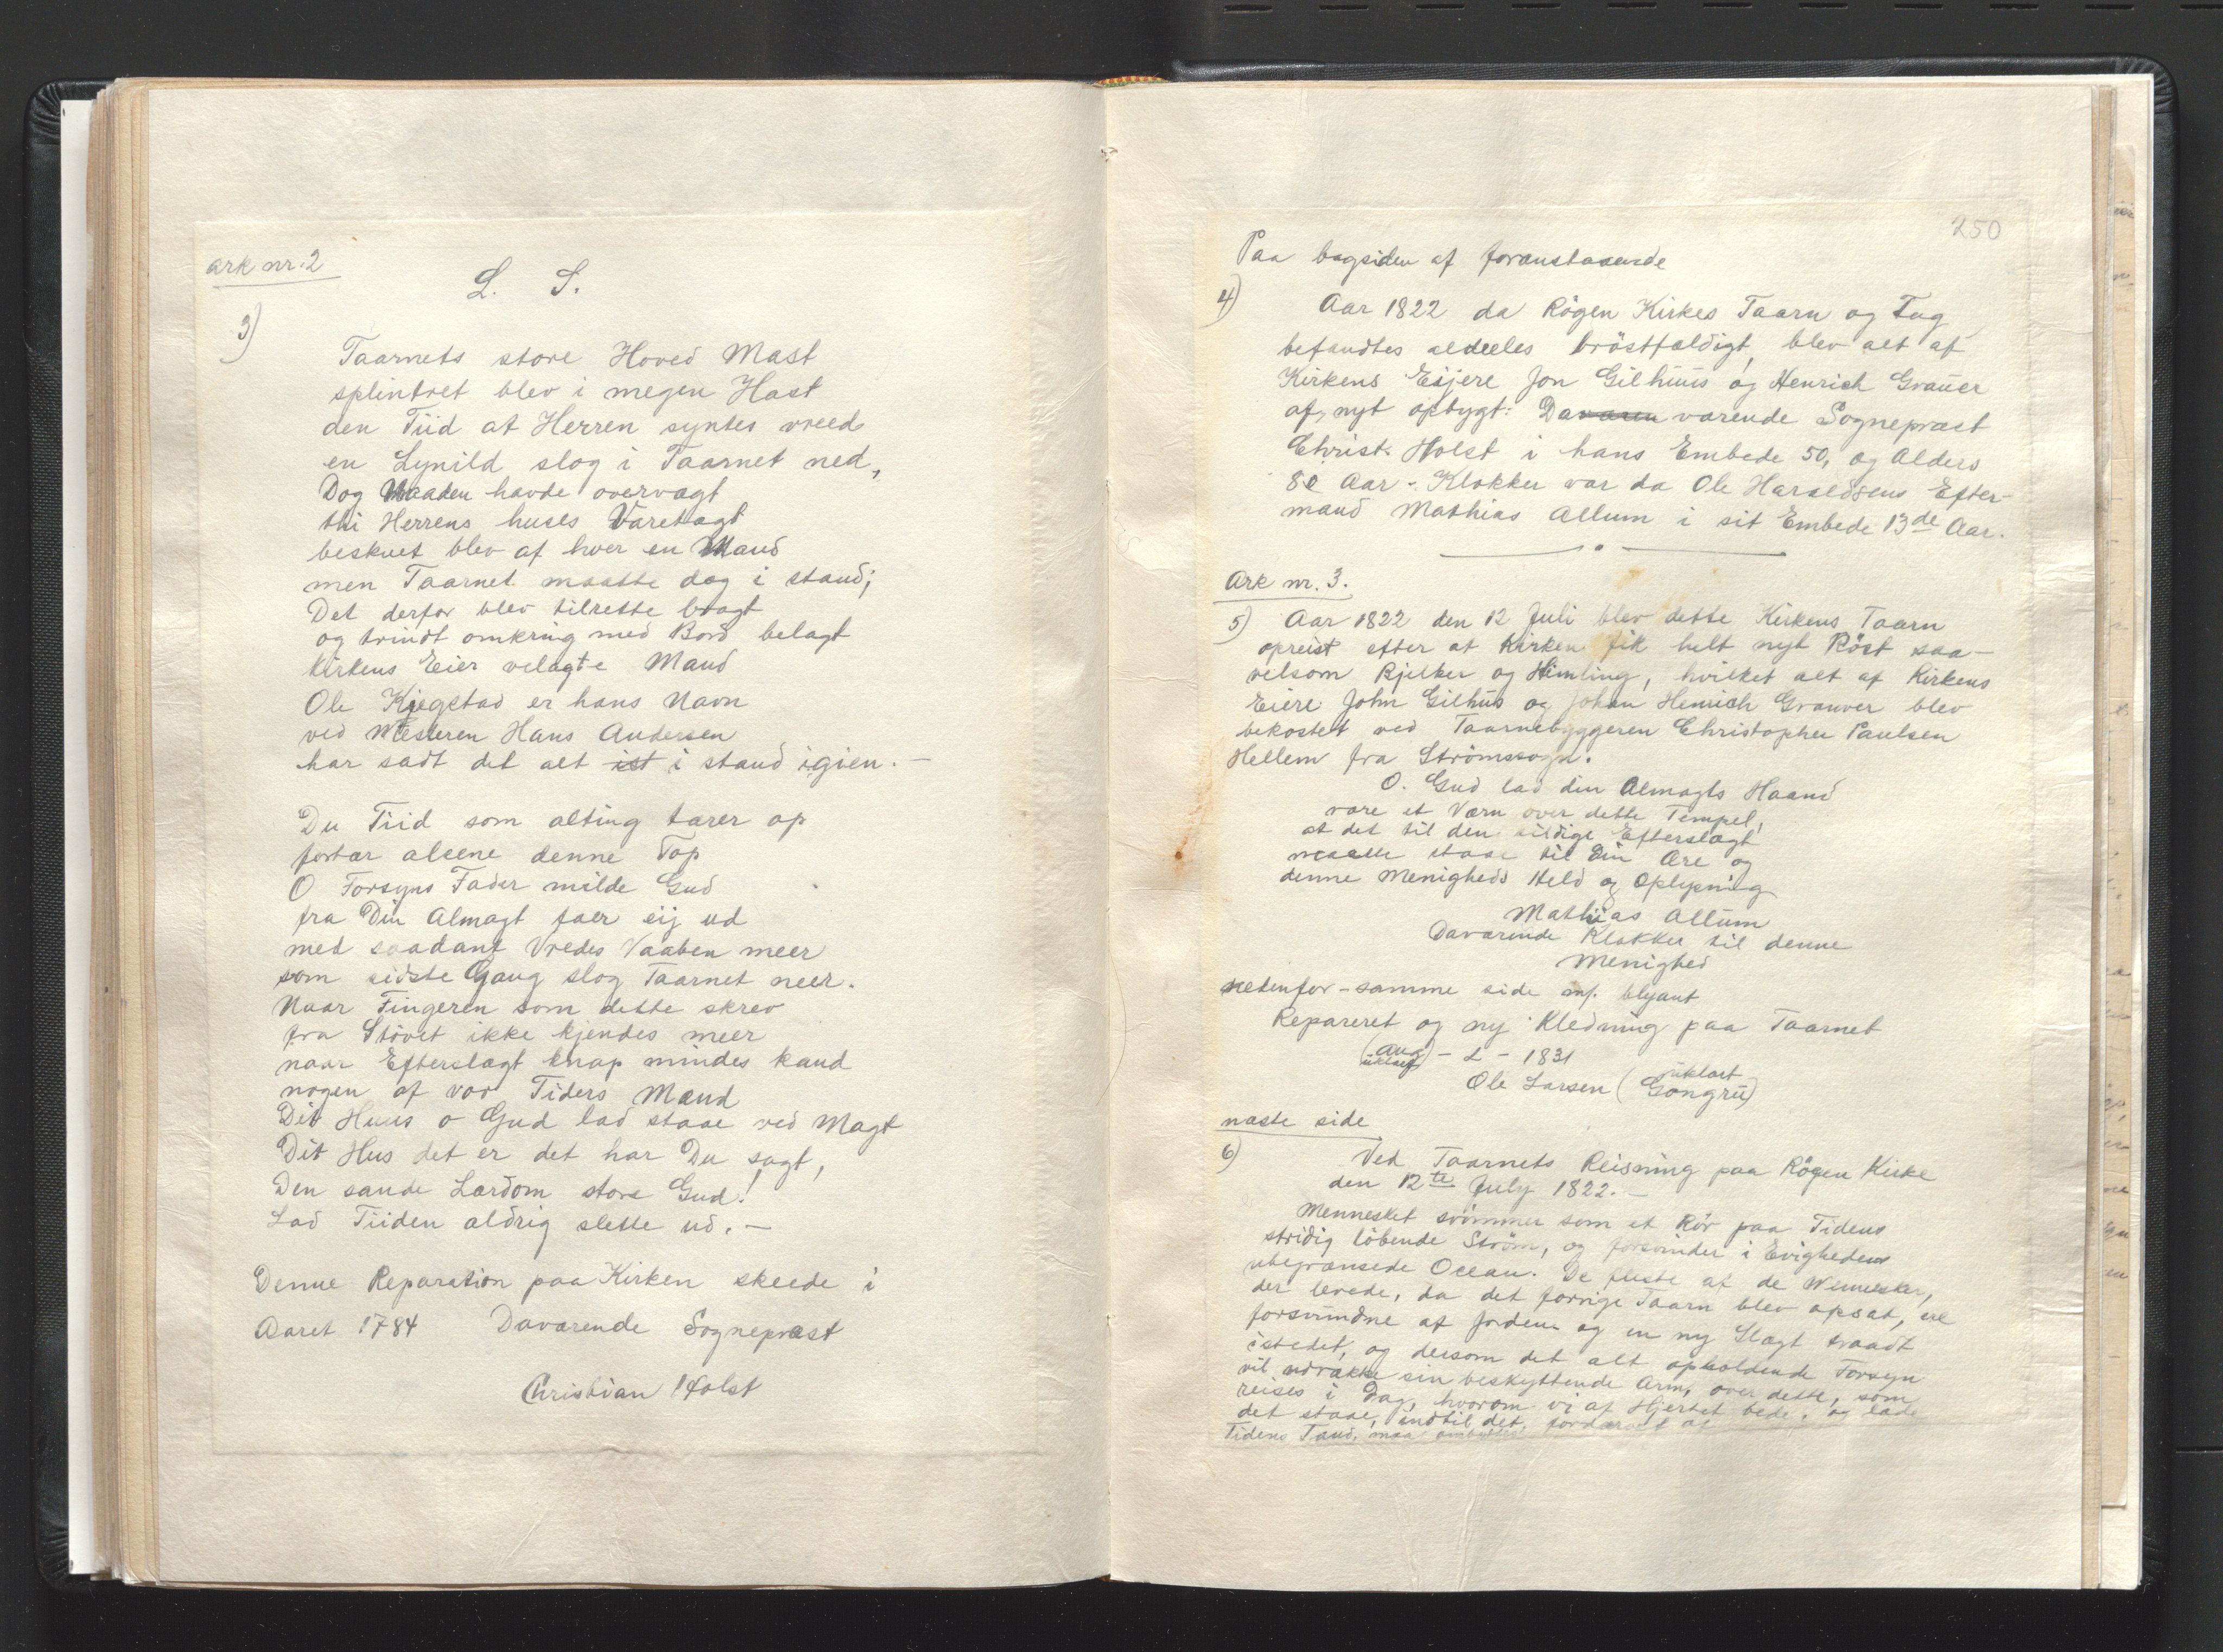 ark nr. 2
L. S.
3)
Taarnets store Hoved Mast
splintret blev i megen Hast
den Tiid at Herren syntes vreed
en Lynild slog i Taarnet ned,
Dog Naaden havde overvægt
thi Herrens huses Varetægt
beskuet blev af hver en Mand
men Taarnet maatte dog i stand;
Det derfor blev tilrette bragt
og trindt omkring med Bord belagt
kirkens Eier velagte Mand
Ole Kjegstad er hans Navn
ved Mesteren Hans Andersen
har sadt det alt ist i stand igien. –
Du Tiid som alting tærer op
fortær aleene denne Top
O Forsyns Fader milde Gud
fra Din Almagt faer eij ud
med saadant Vredes Vaaben meer
som sidste Gang slog Taarnet neer.
Naar Fingeren som dette skrev
fra Støvet ikke kjendes meer
naar Efterslægt knap mindes kand
nogen af vor Tiders Mænd
Dit Huus o Gud lad staae ved Magt
Dit Hus det er det har Du sagt,
Den sande Lærdom store Gud!
Lad Tiiden aldrig slette ud. –
Denne Reparation paa Kirken skeede i
Aaret 1784 Daværende Sogneprest
Christian Holst
250
Paa bagsiden af foranstaaende
4) Aar 1822 da Rögen Kirkes Taarn og Tag
befandtes aldeeles bröstfældigt, blev alt af
Kirkens Eijere Jon Gilhuus og Henrich Grauer
af nyt opbygt: Davaren værende Sogneprest
Christ. Holst i hans Embede 50, og Alders
80 Aar. Klokker var da Ole Haraldsens Efter-
mand Mathias Allum i sit Embede 13de Aar.
Ark nr. 3.
5) Aar 1822 den 12 Juli blev dette Kirkens Taarn
opreist efter at Kirken fik helt nyt Röst saa-
velsom Bjelker og Himling, hvilket alt af Kirkens
Eiere John Gilhus og Johan Henrich Grauver blev
bekostet ved Taarnebyggeren Christopher Paulsen
Hellem fra Strömssogn.
O. Gud lad din Almagts Haand
være et Værn over dette Tempel,
at det til den sildige Efterslægt
maatte staae til Din Ære og
denne Menigheds Held og Oplysning
Mathias Allum
Daværende Klokker til denne
Menighed
nedenfor – samme side m/. blyant
Repareret og ny Kledning paa Taarnet
(Aug) – 2 – 1831
uklart
uklart
Ole Larsen (Gongru)
næste side
6) Ved Taarnets Reisning paa Rögen Kirke
den 12te July 1822. –
Mennesket svömmer som et Rör paa Tidens
stridig löbende Ström, og forsvinder i Evighedens
ubegrænsede Ocean. De fleste af de Mennesker,
der levede, da det forrige Taarn blev opsat, ere
forsvundne af Jorden og en ny Slægt traadt
istedet, og dersom det alt opholdende Forsyn
vil udrække sin beskyttende Arm, over dette, som
reises i Dag, hvorom vi af Hjertet bede, og lade
det staae, indtil det, fordærvet af
Tidens Tand, maa ombyttes